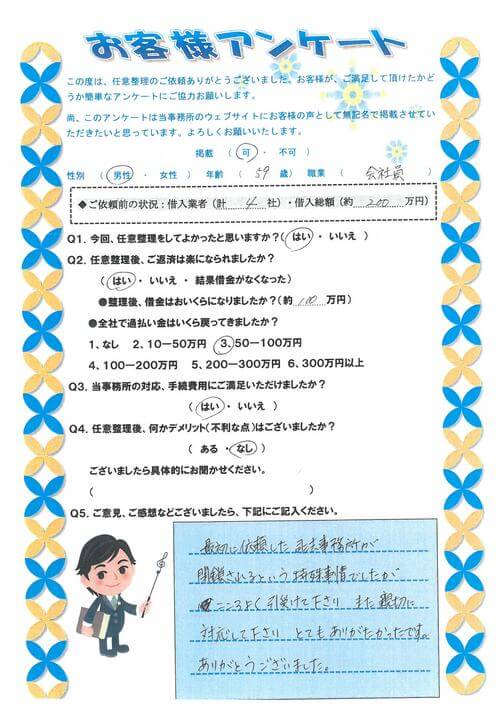 お客様アンケート
この度は、任意整理のご依頼ありがとうございました。お客様が、ご満足して頂けたかど
うか簡単なアンケートにご協力お願いします。
尚、このアンケートは当事務所のウェブサイトにお客様の声として無記名で掲載させてい
ただきたいと思っています。よろしくお願いいたします。
掲載 ( 可 ・ 不可 )
性別 ( 男性 ・ 女性 ) 年齢 ( 59 歳) 職業 ( 会社員 )
◆ご依頼前の状況:借入業者(計 4 社)・借入総額(約 200 万円)
Q1. 今回、任意整理をしてよかったと思いますか?( はい ・ いいえ )
Q2. 任意整理後、ご返済は楽になられましたか?
( はい ・ いいえ ・ 結果借金がなくなった)
●整理後、借金はおいくらになりましたか?(約 100 万円)
●全社で過払い金はいくら戻ってきましたか?
1、なし 2、10-50万円 3、50-100万円
4、100-200万円 5、200-300万円 6、300万円以上
Q3. 当事務所の対応、手続費用にご満足いただけましたか?
( はい ・ いいえ )
Q4. 任意整理後、何かデメリット(不利な点)はございましたか?
( ある ・ なし )
ございましたら具体的にお聞かせください。
( )
Q5. ご意見、ご感想などございましたら、下記にご記入ください。
最初に依頼した 司法事務所が
閉鎖されるという 特殊事情でしたが
こころよく引受けて下さり また 親切に
対応して下さり とてもありがたかったです。
ありがとうございました。